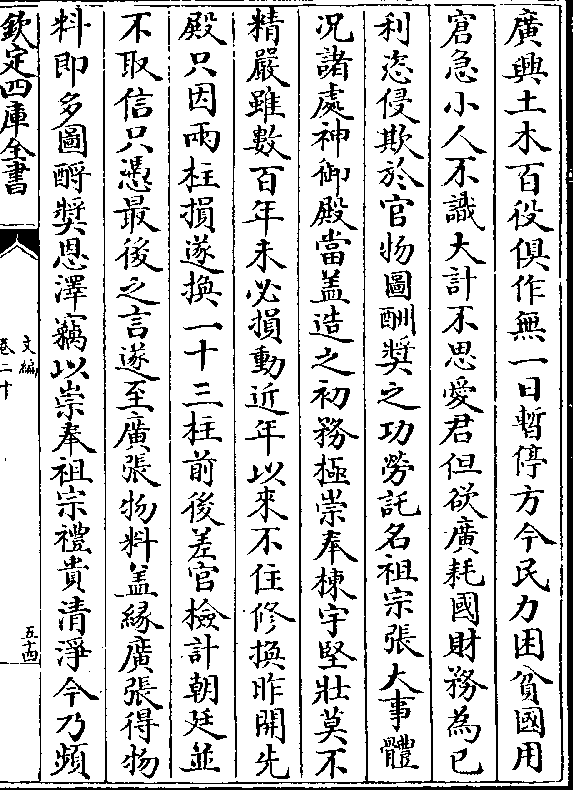 廣興土木百役俱作無一日暫停方今民力困貧國用
窘急小人不識大計不思愛君但欲廣耗國財務為已
利恣侵欺於官物圖酬奬之功勞託名祖宗張大事體
况諸處神御殿當盖造之初務極崇奉棟宇堅壯莫不
精嚴雖數百年未必損動近年以來不住修換昨開先
殿只因兩柱損遂換一十三柱前後差官檢計朝廷並
不取信只憑最後之言遂至廣張物料盖緣廣張得物
料即多圖酧奬恩澤竊以崇奉祖宗禮貴清淨今乃頻
欽定四庫全書
文編
卷二十
五十四